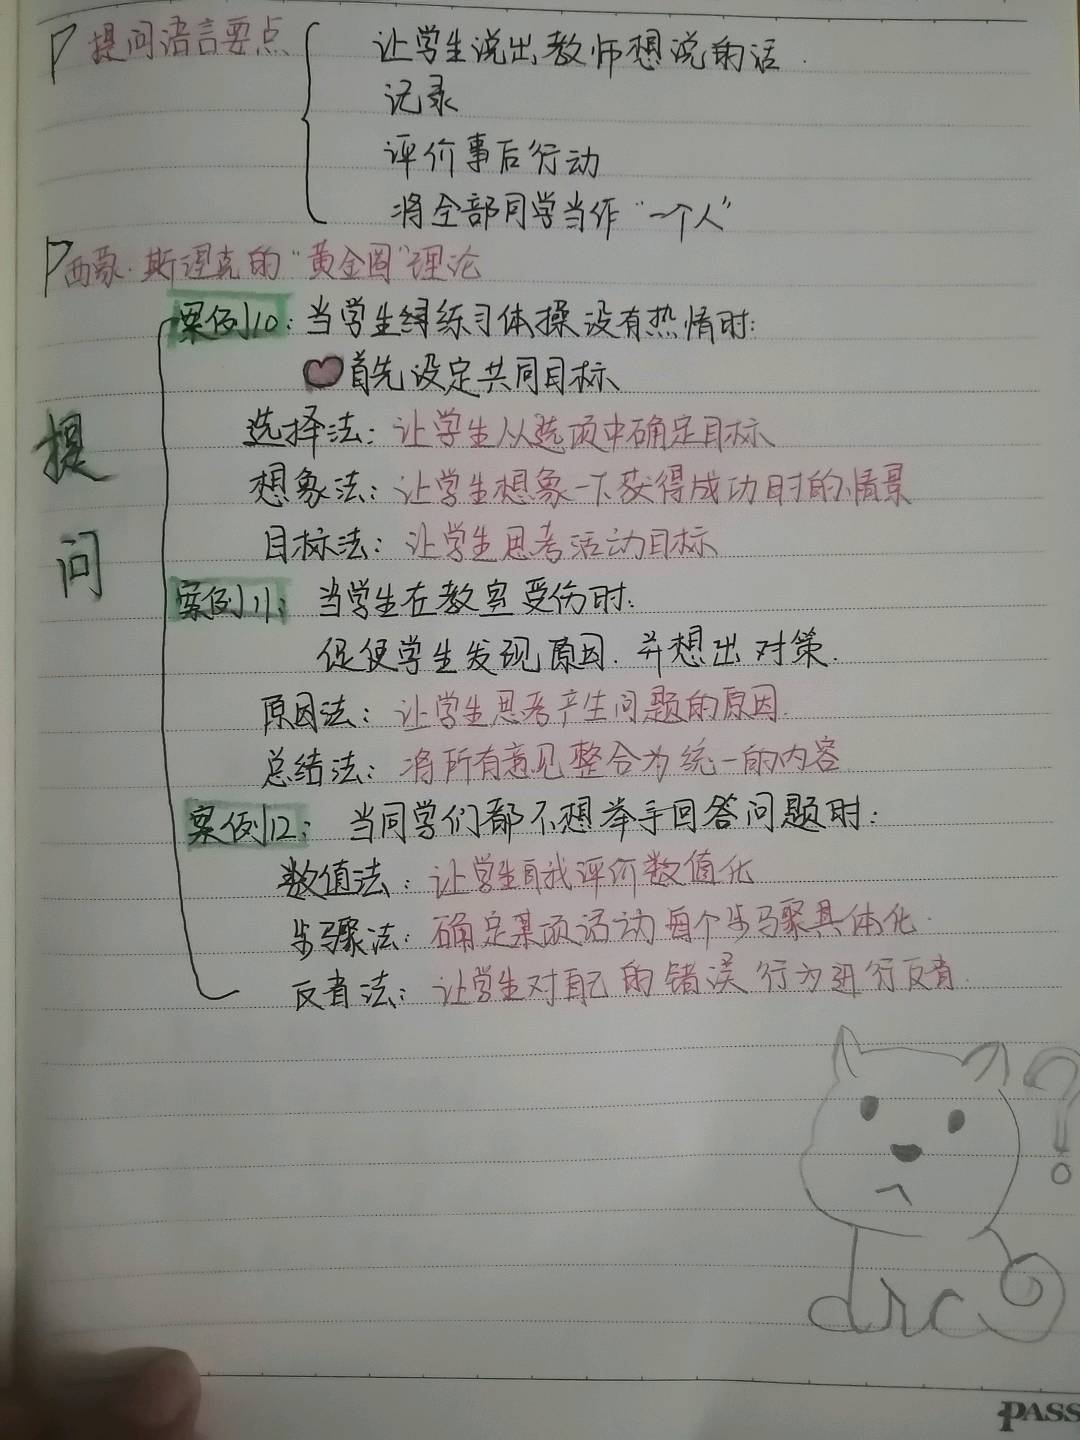 提问语言要点
让学生说出教师想说的话.
记录
评价事后行动
将全部同学当作“一个人”
西蒙·斯涅克的“黄金圈”理论
提问
案例10：当学生练习体操没有热情时：
首先设定共同目标
选择法：让学生从选项中确定目标
想象法：让学生想象一下获得成功时的情景
目标法：让学生思考活动目标
案例11：当学生在教室受伤时：
促使学生发现原因.并想出对策.
原因法：让学生思考产生问题的原因.
总结法：将所有意见整合为统一的内容
案例12：当同学们都不想举手回答问题时：
数值法：让学生自我评价数值化
步骤法：确定某项活动每个步骤具体化.
反省法：让学生对自己的错误行为进行反省.
?
PASS